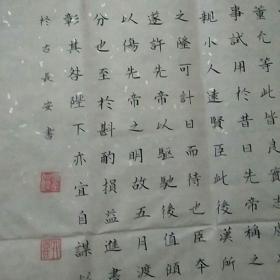 董允等此皆良實志慮
事試用於昔日先帝稱之
小人遠賢臣此後漢所
之隆可計日而待也臣本
遂許先帝以驅馳後值傾
以傷先帝之明故五月渡
分也至於斟酌損益進盡
彰其咎陛下亦宜自謀以
於古長安書